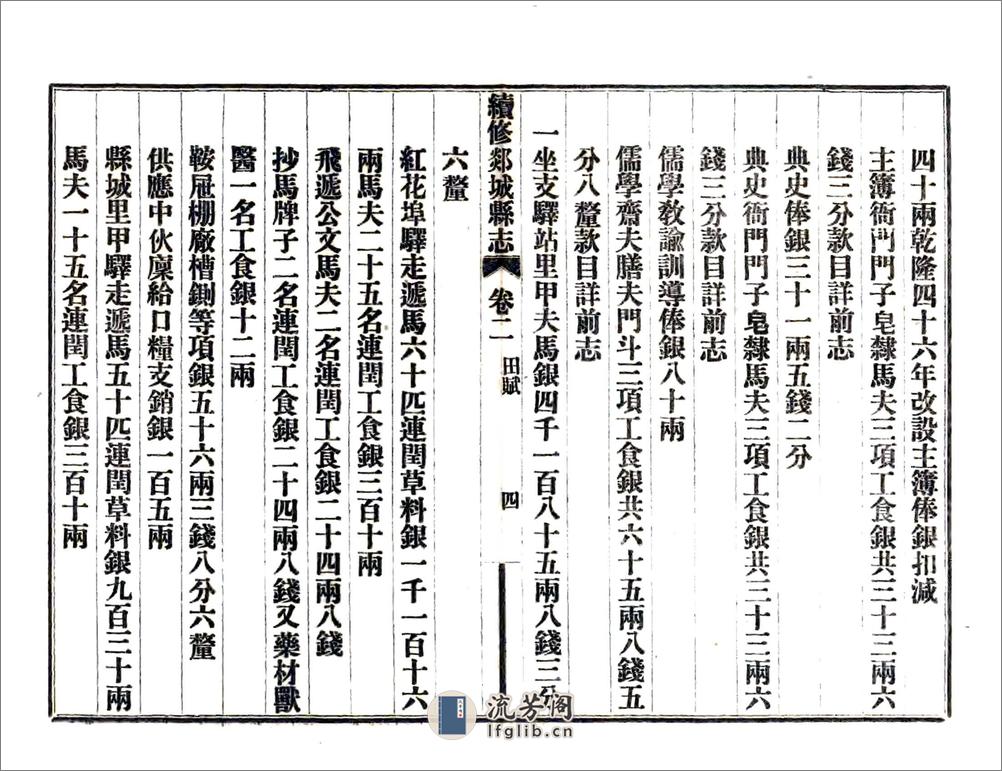 四十兩乾隆四十六年改設主簿俸銀扣減
主簿衙門門子皂隸馬夫三項工食銀共三十三兩六
錢三分款目詳前志
典史俸銀三十一兩五錢二分
典史衙門門子皂隸馬夫三項工食銀共三十三兩六
錢三分款目詳前志
儒學教諭訓導俸銀八十兩
儒學齋夫膳夫門斗三項工食銀共六十五兩八錢五
分八釐款目詳前志
一坐支驛站里甲夫馬銀四千一百八十五兩八錢三分
續修郯城縣志
卷二
田賦
四
六釐
紅花埠驛走遞馬六十匹連閏草料銀一千一百十六
兩馬夫二十五名連閏工食銀三百十兩
飛遞公文馬夫二名連閏工食銀二十四兩八錢
抄馬牌子二名連閏工食銀二十四兩八錢又藥材獸
醫一名工食銀十二兩
鞍屜棚廠槽鍘等項銀五十六兩三錢八分六釐
供應中伙廩給口糧支銷銀一百五兩
縣城里甲驛走遞馬五十匹連閏草料銀九百三十兩
馬夫一十五名連閏工食銀三百十兩
流芳阁
lfglib.cn